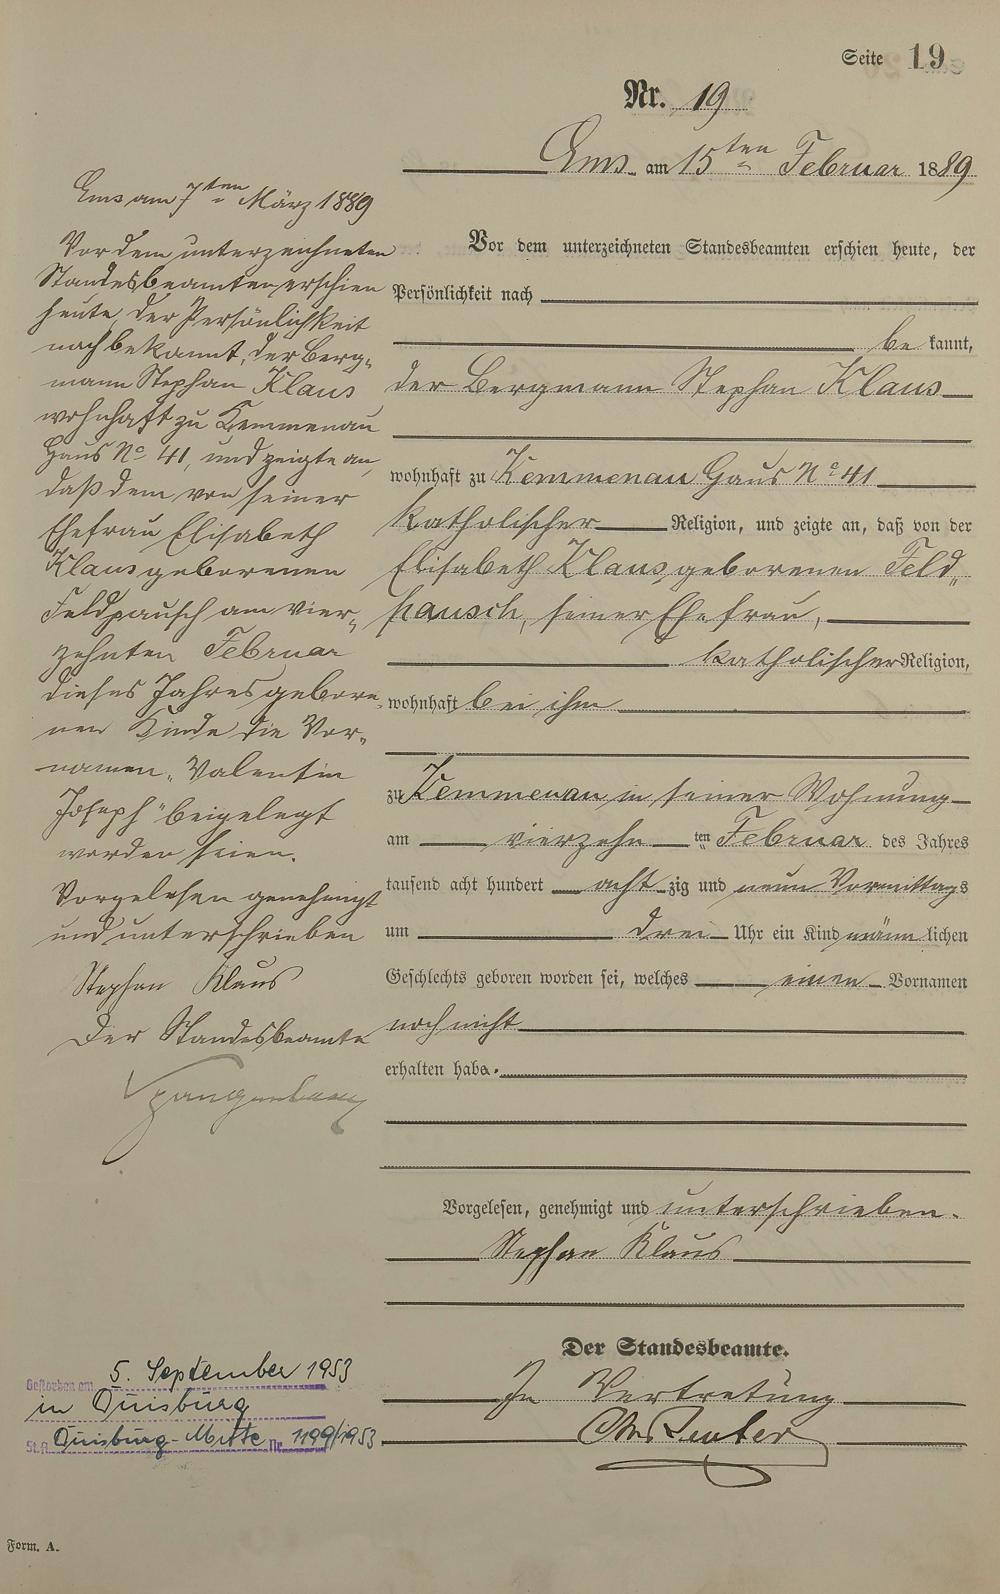 Seite 19
Nr. 19
Ems am 15ten Februar 1889
Vor dem unterzeichneten Standesbeamten erschien heute, der
Persönlichkeit nach
be kannt,
der Bergmann Stephan Klaus
wohnhaft zu Kemmenau Haus No 41
katholischer Religion, und zeigte an, daß von der
Elisabeth Klaus geborenen Feld„
pausch, seiner Ehefrau,
katholischer Religion,
wohnhaft bei ihm
zu Kemmenau in seiner Wohnung
am vierzehn ten Februar des Jahres
tausend acht hundert acht zig und neun Vormittags
um drei Uhr ein Kind männ lichen
Geschlechts geboren worden sei, welches einen Vornamen
noch nicht
erhalten habe.
Vorgelesen, genehmigt und unterschrieben.
Stephan Klaus
Der Standesbeamte.
In Vertretung
Reuter
Ems am 7ten März 1889
Vor dem unterzeichneten
Standesbeamten erschien
heute, der Persönlichkeit
nach bekannt, der Berg„
mann Stephan Klaus
wohnhaft zu Kemmenau
Haus No 41, und zeigte an,
daß dem von seiner
Ehefrau Elisabeth
Klaus geborenen
Feldpausch am vier„
zehnten Februar
dieses Jahres gebore„
nen Kinde die Vor„
namen „Valentin
Joseph" beigelegt
worden seien.
Vorgelesen genehmigt
und unterschrieben
Stephan Klaus
Der Standesbeamte
Gestorben am 5. September 1953
in Duisburg
St.A. Duisburg-Mitte Nr. 1199/1953
Form. A.